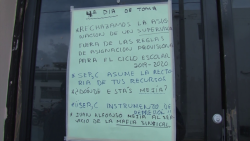 4º DIA DE TOMA
● RECHAZAMOS LA ASIG
NACION DE UN SUPERVISOR
FUERA DE LAS REGLAS
DE ASIGNACION PROVISIONAL
PARA EL CICLO ESCOLAR
2019-2020
● SEPyC ASUME LA RECTO
RIA DE TUS RECURSOS
● ¿DONDE ESTÁS MEJIA?
● USEPyC INSTRUMENTO DE
REPRESION!!
● JUAN ALFONSO MEJIA AL SER
VICIO DE LA MAFIA SINDICAL